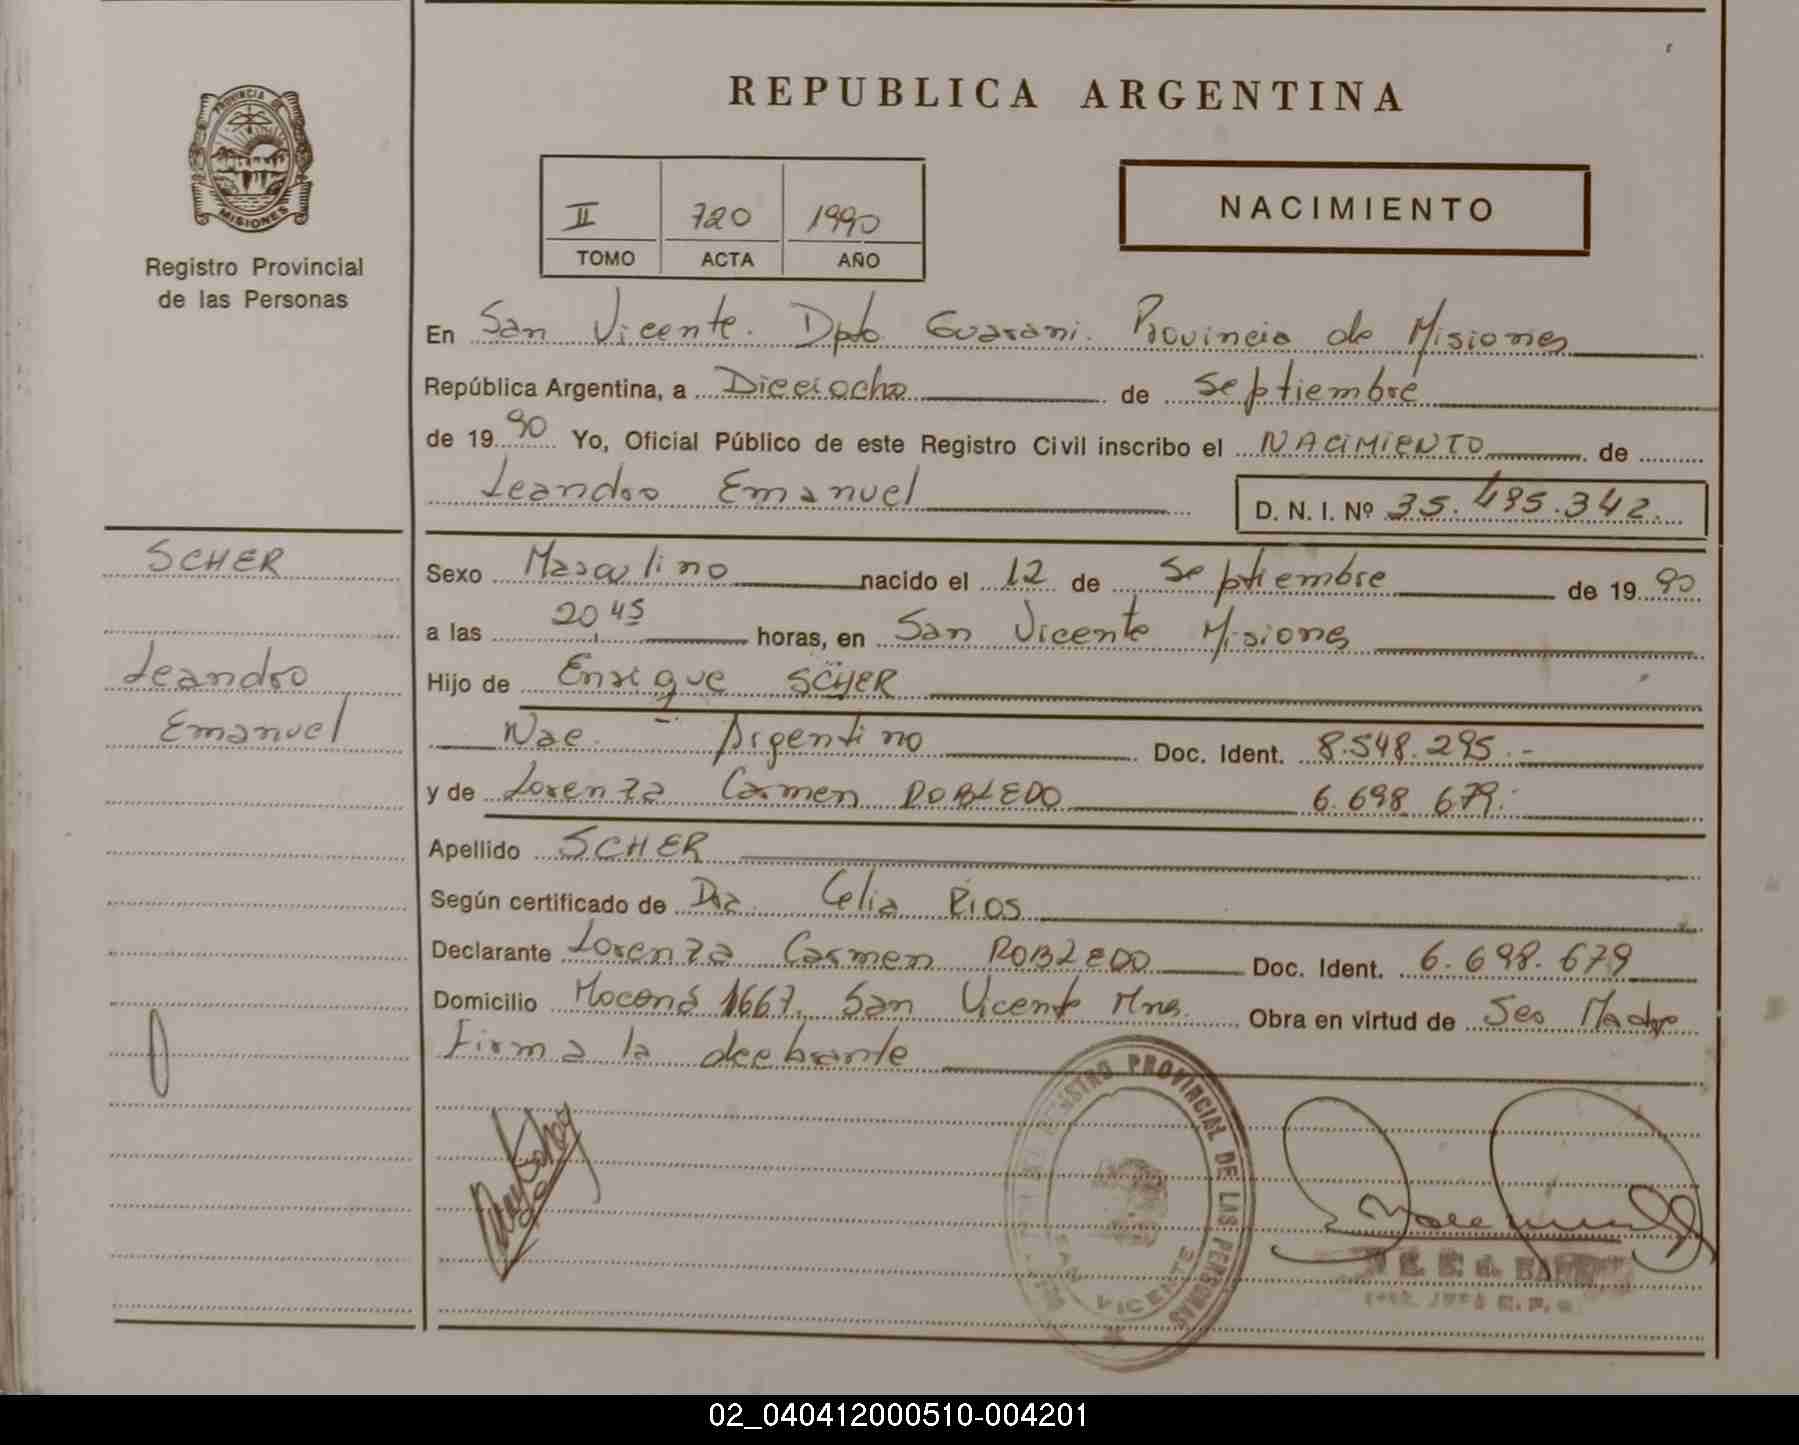 REPUBLICA ARGENTINA
PROVINCIA DE
MISIONES
Registro Provincial
de las Personas
II 720 1990
TOMO ACTA AÑO
NACIMIENTO
En San Vicente. Dpto. Guarani. Provincia de Misiones
República Argentina, a Dieciocho de Septiembre
de 1990 Yo, Oficial Público de este Registro Civil inscribo el NACIMIENTO de
Leandro Emanuel D. N. I. Nº 35.495.342.
SCHER
Leandro
Emanuel
Sexo Masculino nacido el 12 de Septiembre de 1990
a las 20 45 horas, en San Vicente Misiones
Hijo de Enrique SCHER
Nac. Argentino Doc. Ident. 8.548.295.-
y de Lorenza Carmen ROBLEDO 6.698 679.-
Apellido SCHER
Según certificado de Dra. Celia RIOS
Declarante Lorenza Carmen ROBLEDO Doc. Ident. 6.698.679
Domicilio Moconá 1667. San Vicente Mnes. Obra en virtud de Ser Madre
Firma la declarante
REGISTRO PROVINCIAL DE LAS PERSONAS
SAN VICENTE
02_040412000510-004201